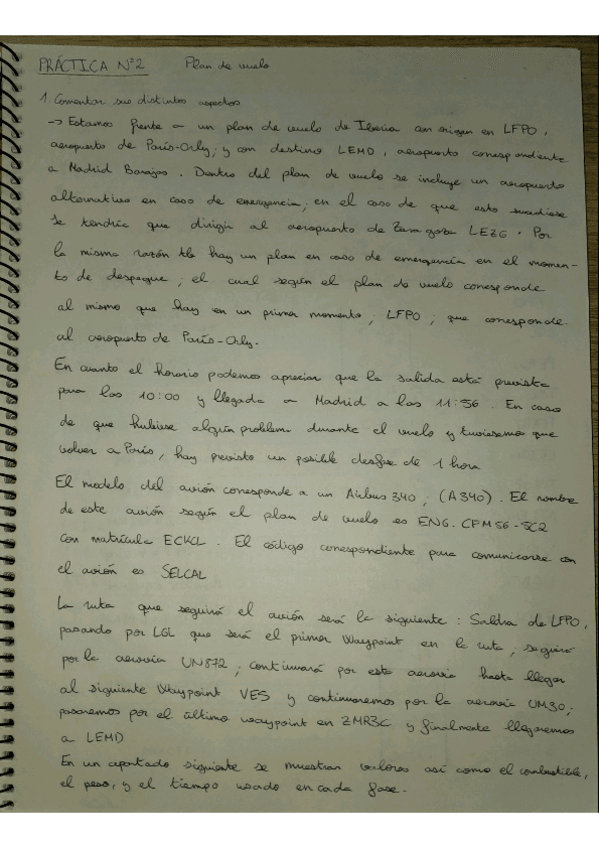 PRÁCTICA Nº2 Plan de vuelo
1. Comentar sus distintos aspectos
→ Estamos frente a un plan de vuelo de Iberia con origen en LFPO,
aeropuerto de París-Orly; y con destino LEMD, aeropuerto correspondiente
a Madrid Barajas. Dentro del plan de vuelo se incluye un aeropuerto
alternativo en caso de emergencia; en el caso de que esto sucediese
se tendría que dirigir al aeropuerto de Zaragoza LEZG. Por
la misma razón hay un plan en caso de emergencia en el momen-
to de despegue; el cual según el plan de vuelo corresponde
al mismo que hay en un primer momento; LFPO; que corresponde
al aeropuerto de París-Orly.
En cuanto el horario podemos apreciar que la salida está prevista
para las 10:00 y llegada a Madrid a las 11:56. En caso
de que hubiese algún problem durante el vuelo y tuviesemos que
volver a París, hay previsto un posible desfase de 1 hora
El modelo del avión corresponde a un Airbus 340; (A340). El nombre
de este avión según el plan de vuelo es ENG. CFM56-5C2
con matrícula ECKCL. El código correspondiente para comunicarse con
el avión es SELCAL
La ruta que seguirá el avión será la siguiente: Saldrá de LFPO,
pasando por LGL que será el primer Waypoint en la ruta; seguirá
por la aerovía UN872; continuará por esta aerovía hasta llegar
al siguiente Waypoint VES y continuaremos por la aerovía UM30;
pasaremos por el último waypoint en ZMR3C y finalmente llegaremos
a LEMD
En un apartado siguiente se muestran valores así como el combustible,
el peso, y el tiempo usado en cada fase.